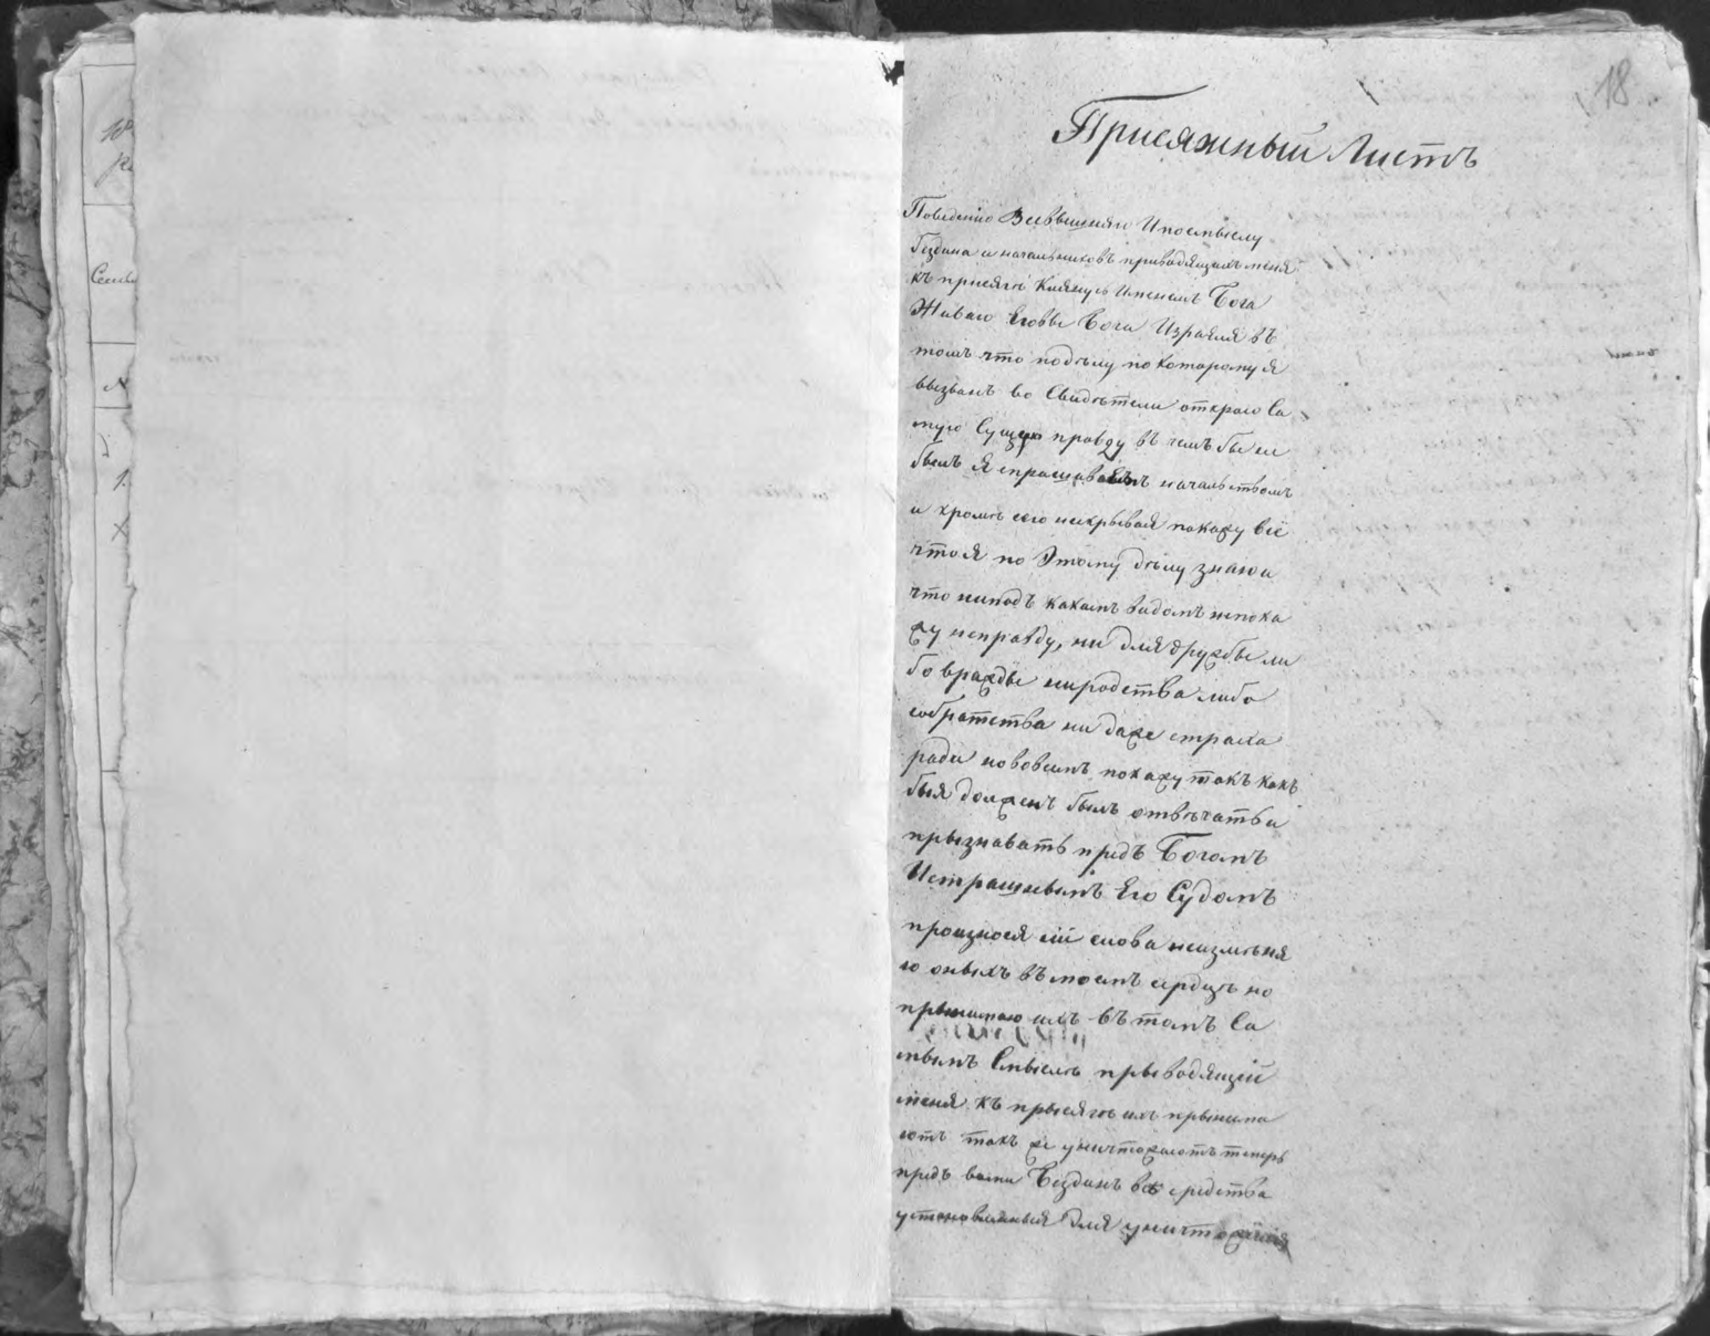 18
Присяжный Листъ
Поведенію Всевышняго Ипосмыслу
бездина и начальниковъ приводящихъ меня
къ присяге Клянусь Именемъ Бога
Живаго Еговы Бога Израиля въ
томъ что подѣлу по которому я
вызванъ во Свидѣтели открою Са
мую Сущую правду въ чемъ бы ни
былъ я спрашиваемъ начальствомъ
и кромѣ сего нескрывая покажу всё
что я по Этому дѣлу знаю и
что ниподъ какимъ видомъ непока
жу неправду, ни для дружбы ли
бо вражды ниродства либо
собратства ни даже страха
ради нововсемъ покажу такъ какъ
быя долженъ былъ отвѣчать и
прызнавать предъ Богомъ
Истрашнымъ Его Судомъ
произнося сіи слова неизмѣня
ю оныхъ въ моемъ сердцѣ но
прынимаю ихъ въ томъ Са
мымъ Смыслѣ прыводящіи
меня къ прысягѣ ихъ прынима
ютъ такъ же уничтожаютъ теперь
предъ вами Бездинъ всѣ средства
установленныя для уничтоженія